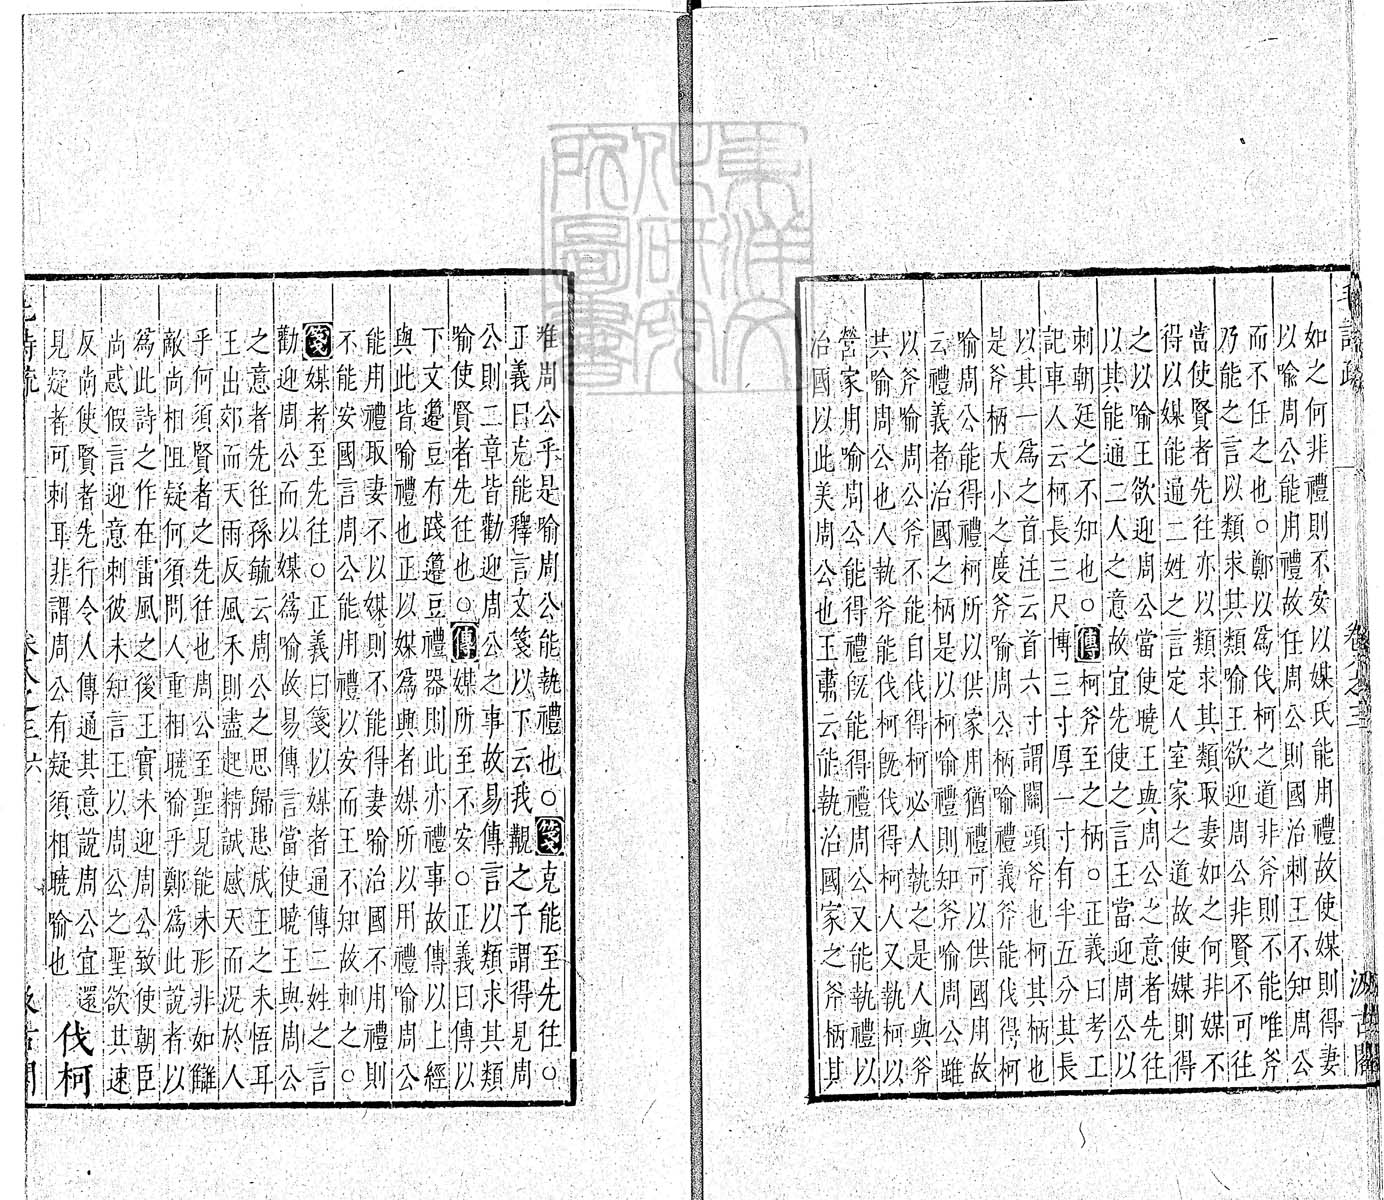 毛詩疏 卷八之三 汲古閣
如之何非禮則不安以媒氏能用禮故使媒則得妻
以喻周公能用禮故任周公則國治刺王不知周公
而不任之也○鄭以爲伐柯之道非斧則不能唯斧
乃能之言以類求其類喻王欲迎周公非賢不可往
當使賢者先往亦以類求其類取妻如之何非媒不
得以媒能通二姓之言定人室家之道故使媒則得
之以喻王欲迎周公當使曉王與周公之意者先往
以其能通二人之意故宜先使之言王當迎周公以
刺朝廷之不知也○傳柯斧至之柄○正義曰考工
記車人云柯長三尺博三寸厚一寸有半五分其長
以其一爲之首注云首六寸謂關頭斧也柯其柄也
是斧柄大小之度斧喻周公柄喻禮義斧能伐得柯
喻周公能得禮柯所以供家用猶禮可以供國用故
云禮義者治國之柄是以柯喻禮則知斧喻周公雖
以斧喻周公斧不能自伐得柯必人執之是人與斧
共喻周公也人執斧能伐柯既伐得柯人又執柯以
營家用喻周公能得禮既能得禮周公又能執禮以
治國以此美周公也王肅云能執治國家之斧柄其
唯周公乎是喻周公能執禮也○箋克能至先往○
正義曰克能釋言文箋以下云我覯之子謂得見周
公則二章皆勸迎周公之事故易傳言以類求其類
喻使賢者先往也○傳媒所至不安○正義曰傳以
下文籩豆有踐籩豆禮器則此亦禮事故傳以上經
與此皆喻禮也正以媒爲興者媒所以用禮喻周公
能用禮取妻不以媒則不能得妻喻治國不用禮則
不能安國言周公能用禮以安而王不知故刺之○
箋媒者至先往○正義曰箋以媒者通傳二姓之言
勸迎周公而以媒爲喻故易傳言當使曉王與周公
之意者先往孫毓云周公之思歸悲成王之未悟耳
王出郊而天雨反風禾則盡起精誠感天而況於人
乎何須賢者之先往也周公至聖見能未形非如讎
敵尚相阻疑何須問人重相曉喻乎鄭爲此說者以
爲此詩之作在雷風之後王實未迎周公致使朝臣
尚惑假言迎意刺彼未知言王以周公之聖欲其速
反尚使賢者先行令人傳通其意說周公宜還
見疑者可刺耳非謂周公有疑須相曉喻也 伐柯
毛詩疏 卷八之三 六 汲古閣
東洋文化研究所圖書